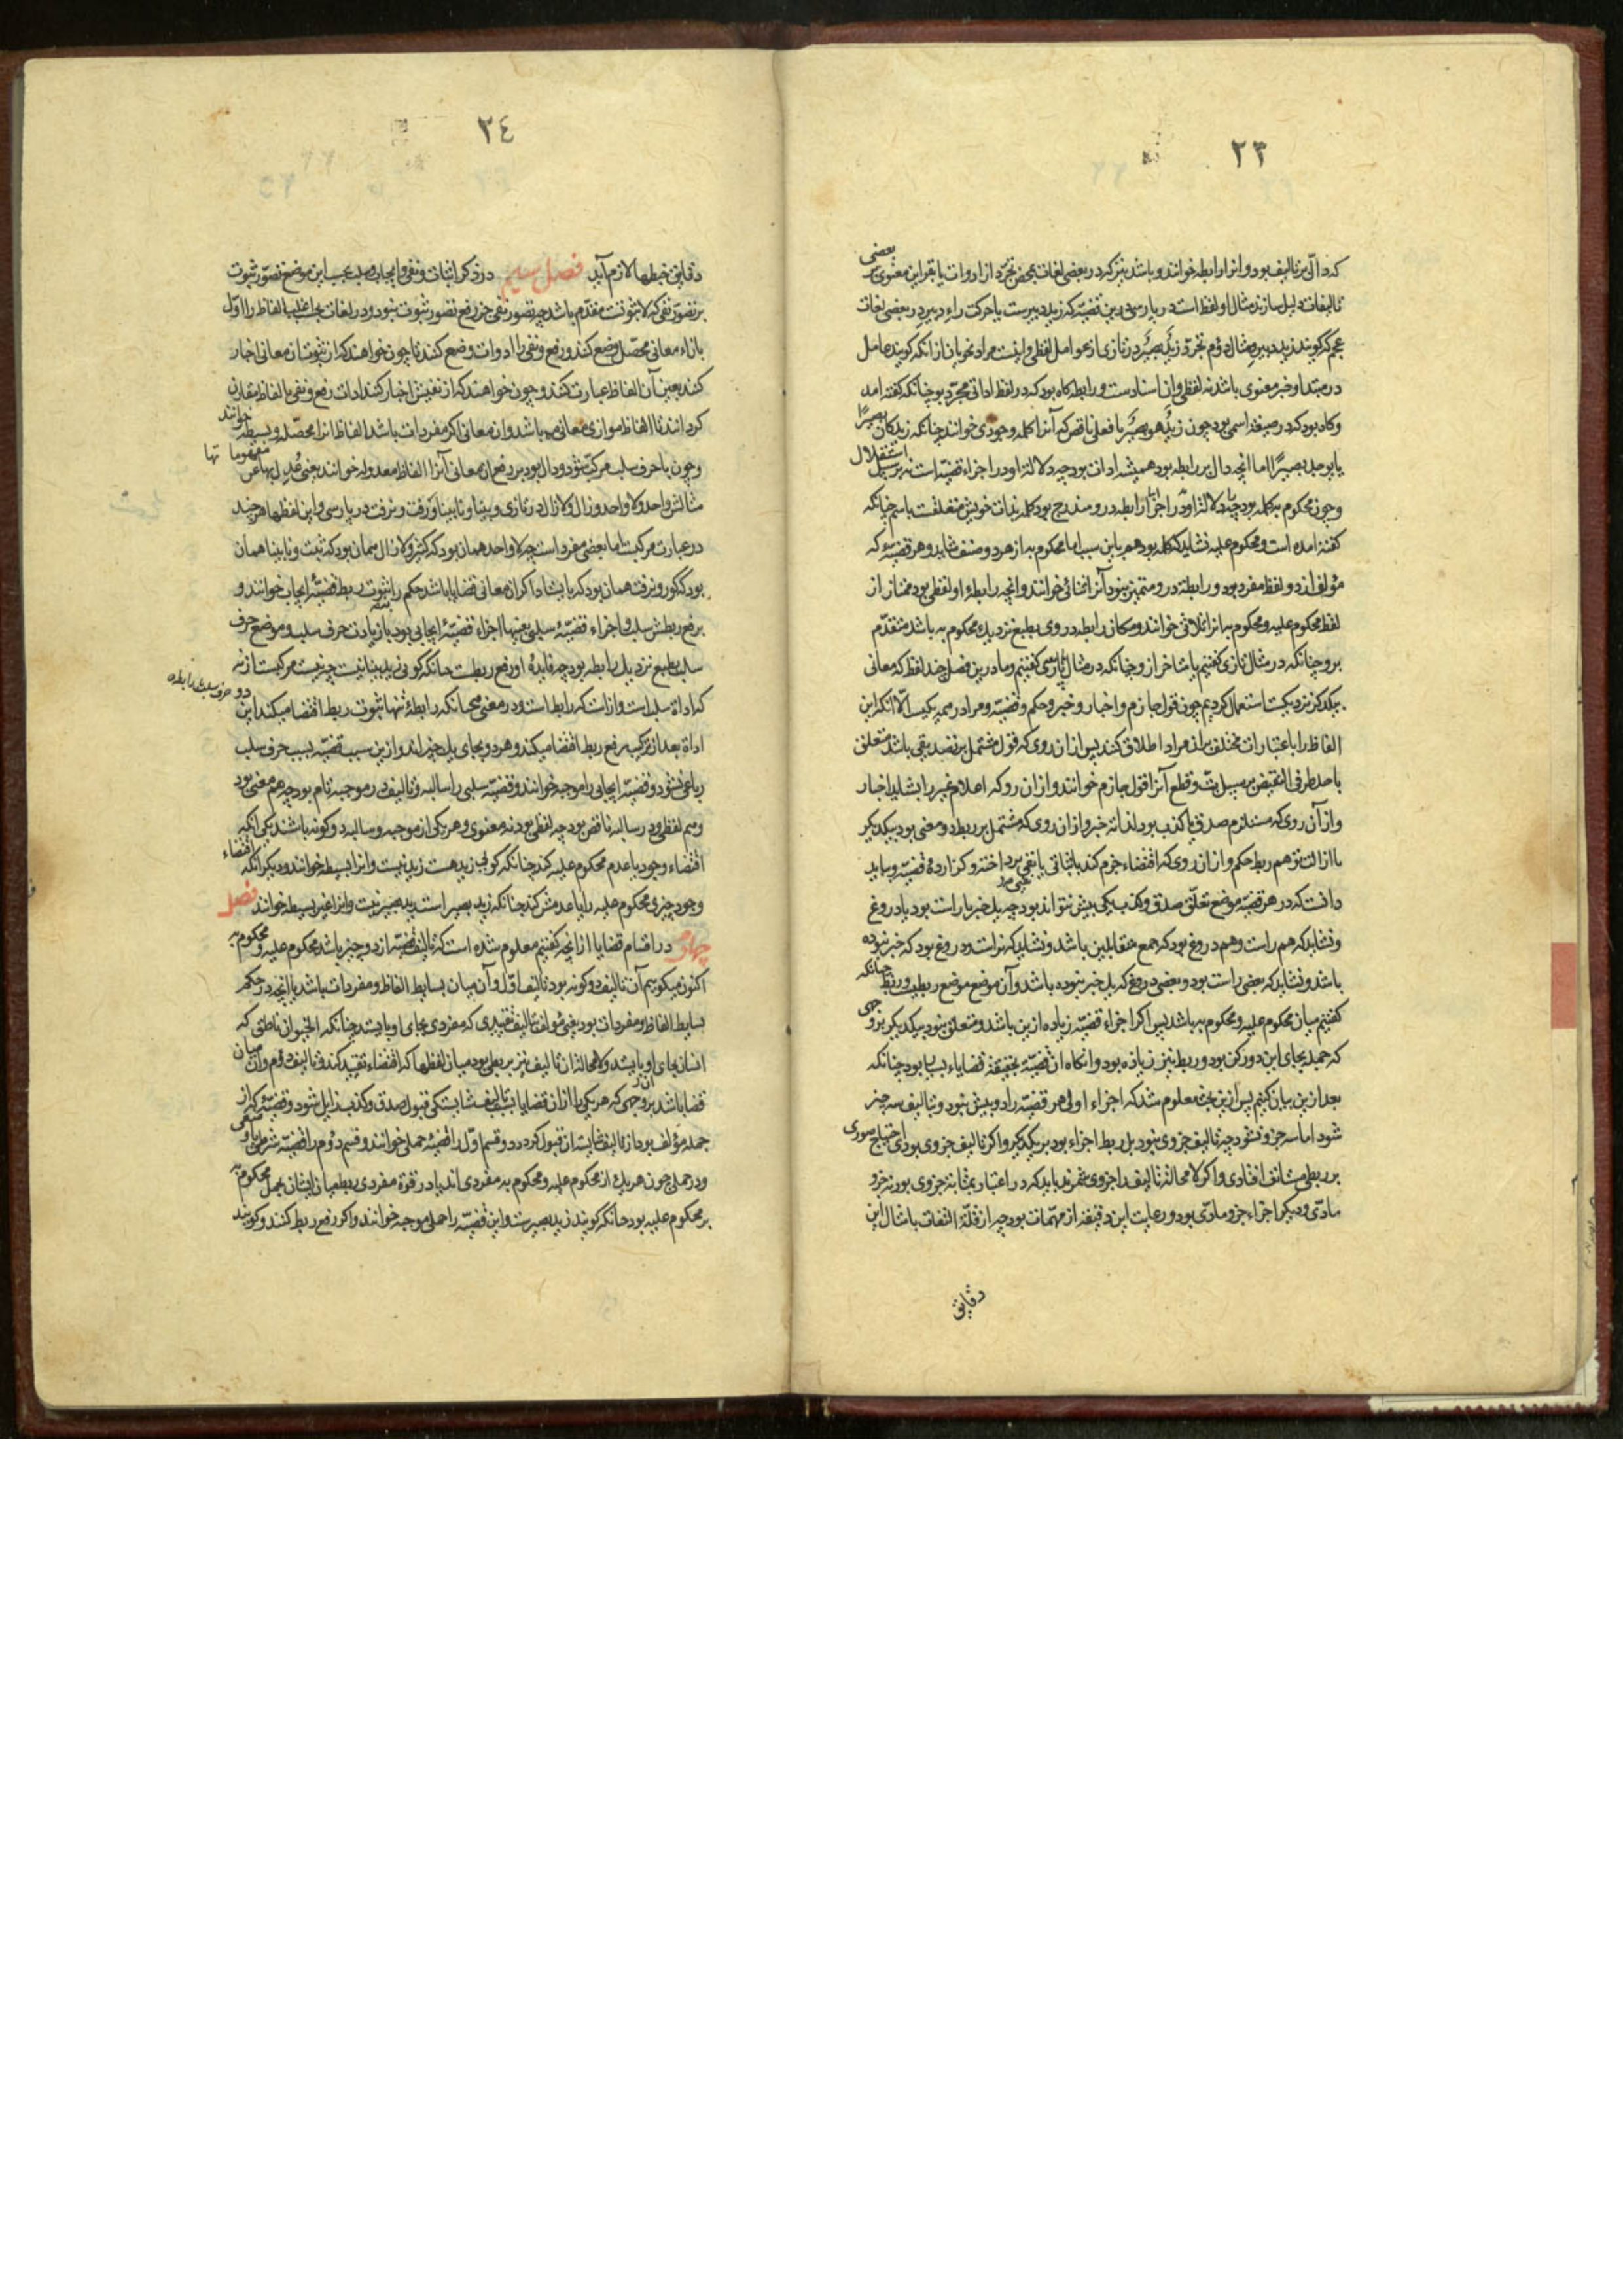 ٢٣
که دال بر تالیف بود و انرا رابطه خوانند و باشد نیز که در بعضی لغات بمحض تجرد از ادوات یا بقراین معنوی بر بعضی
تالیفات دلیل سازند مثال اول لفظ است در پارسی درین قضیه که زید دبیرست یا حرکت راء دبیر در بعضی لغات
عجم که گویند زید دبیر و مثال دوم تجرد زیدٌ بصیرٌ در تازی از عوامل لفظی و اینست مراد نحویان از انکه گویند عامل
در مبتدا و خبر معنوی باشد نه لفظی و ان اسنادست و رابطه گاه بود که در لفظ اداتی مجرد بود چنانکه گفته امد
و گاه بود که در صیغه اسمی بود چون زیدٌ هو بصیرٌ یا فعلی ناقص که آنرا کلمه وجودی خوانند چنانکه زید کان بصیرًا
یا یوجد بصیرًا اما انچه دال بر رابطه بود همیشه ادات بود چه دلالة او در اجزاء قضیه است نه بر سبیل استقلال
و چون محکوم به کلمه بود چه دلالة او در اجزا رابطه درو مندرج بود کلمه بذات خویش متعلقست باسم چنانکه
گفته امده است و محکوم علیه نشاید که کلمه بود هم باین سبب اما محکوم به از هر دو صنف شاید و هر قضیه که
مولف از دو لفظ مفرد بود و رابطه درو متمیز نبود آنرا ثنائی خوانند و انچه رابطهٔ او لفظی بود ممتاز از
لفظ محکوم علیه و محکوم به انرا ثلاثی خوانند و مکان رابطه در وی بطبع نزدیک محکوم به باشد متقدم
برو چنانکه در مثال تازی گفتیم یا متاخر ازو چنانکه در مثال پارسی گفتیم و ما درین فصل چند لفظ که معانی
یکدیگر نزدیکست استعمال کردیم چون قول جازم و اخبار و خبر و حکم و قضیه و مراد از همه یکیست الا انکه این
الفاظ را باعتبارات مختلف بران مراد اطلاق کنند پس ازان روی که قول مشتمل بر تصدیقی باشد متعلق
باحد طرفی النقیض بر سبیل بت و قطع آنرا قول جازم خوانند و ازان رو که اعلام غیر را بشاید اخبار
و از آن روی که مستلزم صدق یا کذب بود لذاته خبر و ازان روی که مشتمل بر ربط دو معنی بود بیکدیگر
یا ازالت توهم ربط حکم و ازان روی که اقتضاء جزم کند باثباتی یا نفیی پرداخته و گزارده قضیه و بباید
دانست که در هر قضیه موضع تعلق صدق و کذب یکی بیش نتواند بود چه یک خبر یا راست بود یا دروغ
و نشاید که هم راست و هم دروغ بود که جمع متقابلین باشد و نشاید که نه راست و نه دروغ بود که خبر نبوده
باشد و نشاید که بعضی راست بود و بعضی دروغ که یک خبر نبوده باشد و آن موضع موضع ربطیست و ربط چنانکه
گفتیم میان محکوم علیه و محکوم به باشد پس اگر اجزاء قضیه زیاده ازین باشد و متعلق نبود بیکدیگر بر وجهی
که جمله بجای این دو رکن بود و ربط نیز زیاده بود و انگاه ان قضیه بحقیقة قضایاء بسیار بود چنانکه
بعد ازین بیان کنیم پس ازین بحث معلوم شد که اجزاء اولی هر قضیه را دو بیش نبود و بتالیف سه چیز
شود اما سه جزو نشود چه تالیف جزوی نبود بل ربط اجزاء بود بر یکدیگر و اگر تالیف جزوی بودی احتیاج
بر ربطی مستانف افتادی و اگر لا محالة تالیف را جزوی شمرند باید که در اعتبار بمثابة جزوی بود نه جزو صوری
مادی و دیگر اجزاء جزو مادی بود و رعایت این دقیقه از مهمات بود چه از قلة التفات بامثال این
دقایق
٢٤
دقایق خبطها لازم آید فصل سیم در ذکر اثبات و نفی و ایجاب و سلب بحسب این موضع تصور ثبوت
بر تصور نفی که لا ثبوتست مقدم باشد چه تصور نفی جز رفع تصور ثبوت نبود و در لغات بحسب اغلب الفاظ را اول
بازاء معانی محصل وضع کنند و رفع و نفی را ادوات وضع کنند تا چون خواهند که از ثبوت ان معانی اخبار
کنند بعین آن الفاظ عبارت کنند و چون خواهند که از نقیضش اخبار کنند ادات رفع و نفی با الفاظ مقارن
گردانند تا الفاظ موازی معانی باشد و ان معانی اگر مفردات باشد الفاظ انرا محصله و بسیطه خوانند
و چون با حرف سلب مرکب شود و دال بود بر رفع ان معانی آنرا الفاظ معدوله خوانند یعنی عُدِل بها عن مفهوماتها
مثالش واحد و لا واحد و زال و لا زال در تازی و بینا و نابینا و رفت و نرفت در پارسی و این لفظها هر چند
در عبارت مرکبست اما بمعنی مفرد است چه لا واحد همان بود که کثیر و لا زال همان بود که ثبت و نابینا همان
بود که کور و نرفت همان بود که بایستاد اما اگر ان معانی قضایا باشد حکم را ثبوت ربط قضیهٔ ایجاب خوانند و
برفع ربطش سلب و اجزاء قضیهٔ سلبی بعینها اجزاء قضیهٔ ایجابی بود با زیادت حرف سلب و موضع حرف
سلب بطبع نزدیک رابطه بود چه فایدهٔ او رفع ربطست چنانکه گویی زید بینا نیست چه نیست مرکبست از نه
که اداة سلب است و از است که رابط است و در معنی همچنانکه رابطهٔ تنها ثبوت ربط اقتضا میکند این دو حرف سلب و رابطه
اداة بعد از ترکیب رفع ربط اقتضا میکند و هر دو بجای یک چیز اند و ازین سبب قضیه بسبب حرف سلب
رباعی نشود و قضیه ایجابی را موجبه خوانند و قضیه سلبی را سالبه و تالیف در موجبه تام بود چه هم معنوی بود
و هم لفظی و در سالبه ناقص بود چه لفظی بود نه معنوی و هر یکی از موجبه و سالبه دو گونه باشند یکی انکه
اقتضاء وجود یا عدم محکوم علیه کند چنانکه گویی زید هست زید نیست و انرا بسیطه خوانند و دیگر انکه اقتضاء
وجود چیزی محکوم علیه را یا عدمش کند چنانکه زید بصیر است زید بصیر نیست و انرا غیر بسیطه خوانند فصل
چهارم در اقسام قضایا از انچه گفتیم معلوم شده است که تالیف قضیه از دو چیز باشد محکوم علیه و محکوم به
اکنون میگوییم آن تالیف دو گونه بود تالیف اول و آن میان بسایط الفاظ و مفردات باشد یا انچه در حکم
بسایط الفاظ و مفردات بود یعنی مولف بتالیف تقییدی که مفردی بجای او بایستد چنانکه الحیوان ناطق که
انسان بجای او بایستد و لا محالة ان تالیف نیز بربطی بود میان لفظها که اقتضاء تقیید کند و تالیف دوم وان میان
قضایا باشد بر وجهی که هر یکی را از ان قضایا بسبب تالیف شایستگی قبول صدق و کذب زایل شود و قضیهٔ که از
جمله مؤلف بود از تالیف شایسته ان قبول گردد و قسم اول را قضیهٔ حملی خوانند و قسم دوم را قضیهٔ شرطی یا وضعی
و در حملی چون هر یک از محکوم علیه و محکوم به مفردی اند یا در قوة مفردی ربط میان ایشان بحمل محکوم به
بر محکوم علیه بود چنانکه گویند زید بصیرست و این قضیه را حملی موجبه خوانند و اگر رفع ربط کنند و گویند